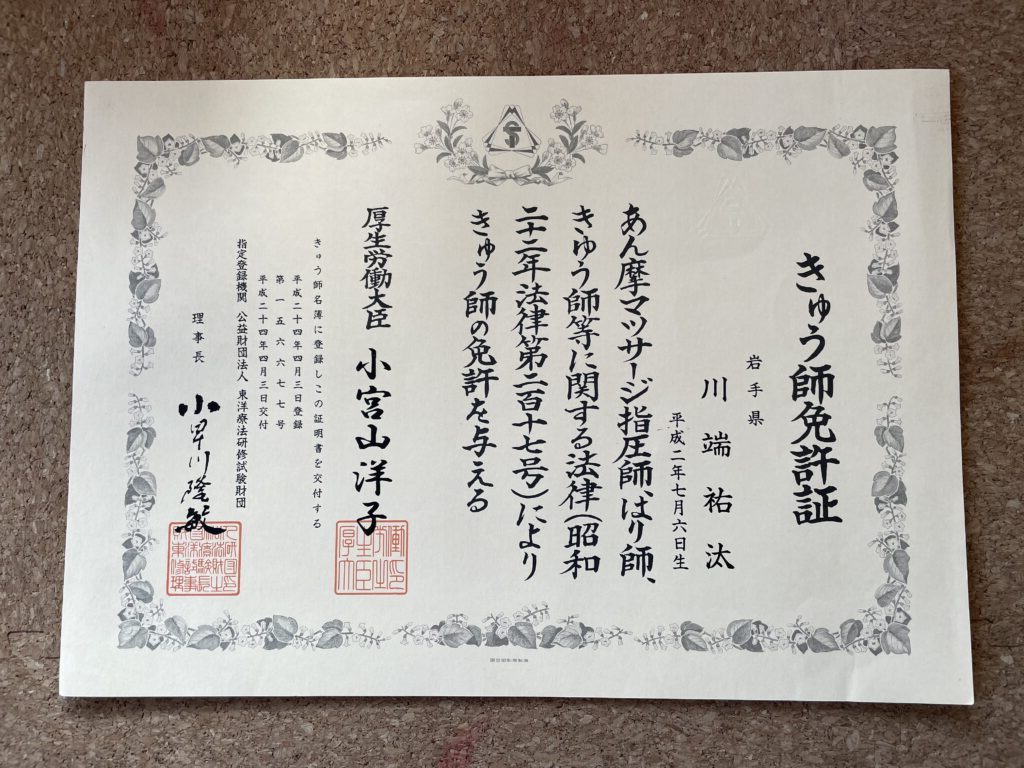 きゅう師免許証
岩手県
川端祐汰
平成二年七月六日生
あん摩マツサージ指圧師、はり師、
きゆう師等に関する法律(昭和
二十二年法律第二百十七号)により
きゅう師の免許を与える
厚生労働大臣 小宮山洋子
きゅう師名簿に登録しこの証明書を交付する
平成二十四年四月三日登録
第一五六六七七号
平成二十四年四月三日交付
指定登録機関 公益財団法人 東洋療法研修試験財団
理事長 小早川隆敏